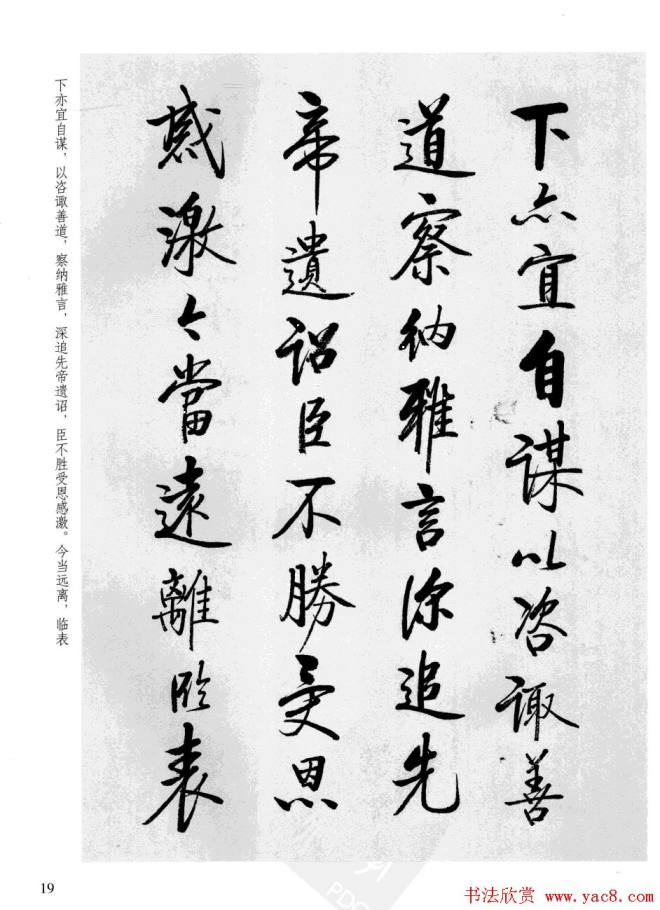 下亦宜自謀以咨諏善
道察納雅言深追先
帝遺詔臣不勝受恩
感激今當遠離臨表
下亦宜自谋，以咨诹善道，察纳雅言，深追先帝遗诏，臣不胜受恩感激。今当远离，临表
19
书法欣赏 www.yac8.com